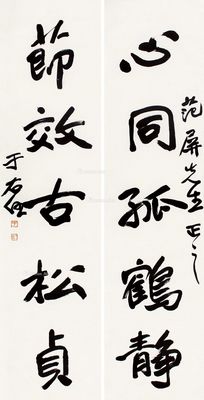 心同孤鶴静
范屏先生正之
節效古松貞
于右任